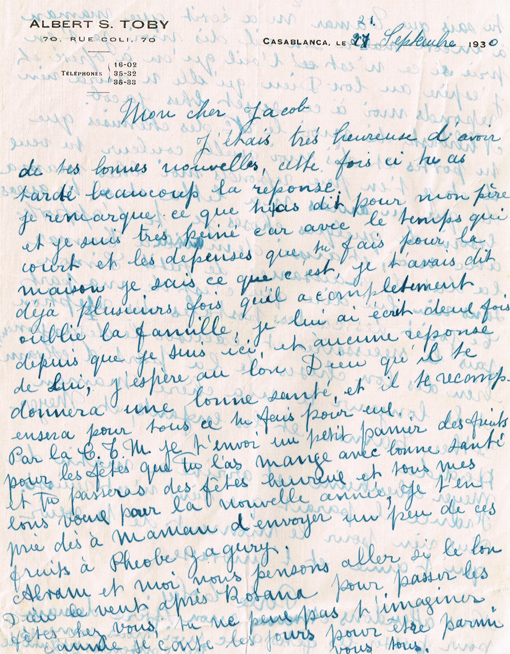 ALBERT S. TOBY
70, RUE COLI, 70
TÉLÉPHONES 16-02
35-32
38-33
CASABLANCA, LE 21 Septembre 1930
Mon cher Jacob
J'étais très heureuse d'avoir
de tes bonnes nouvelles, cette fois ci tu as
tardé beaucoup la reponse.
je remarque ce que tu as dit pour mon père
et je suis très peiné car avec le temps qui
court et les dépenses que tu fais pour la
maison je sais ce que c'est, je t'avais dit
déjà plusieurs fois qu'il a completement
oublié la famille, je lui ai écrit deux fois
depuis que je suis ici, et aucune réponse
de lui, j'espère au bon Dieu qu'il te
donnera une bonne santé, et il te recomp-
ensera pour tous ce tu fais pour eux.
Par la C.T.M. je t'envoi un petit panier des fruits
pour les fêtes que tu las mange avec bonne santé
et tu passeras des fêtes heureux et tous mes
bons voeux pour la nouvelle année, je t'en
prie dès à maman d'envoyer un peu de ces
fruits à Pheobe Jagury.
Abram et moi nous pensons aller si le bon
Dieu le veut après Rosana pour passer les
fêtes chez vous, tu ne peus pas t'imaginer
je compte les jours pour être parmi
vous tous.